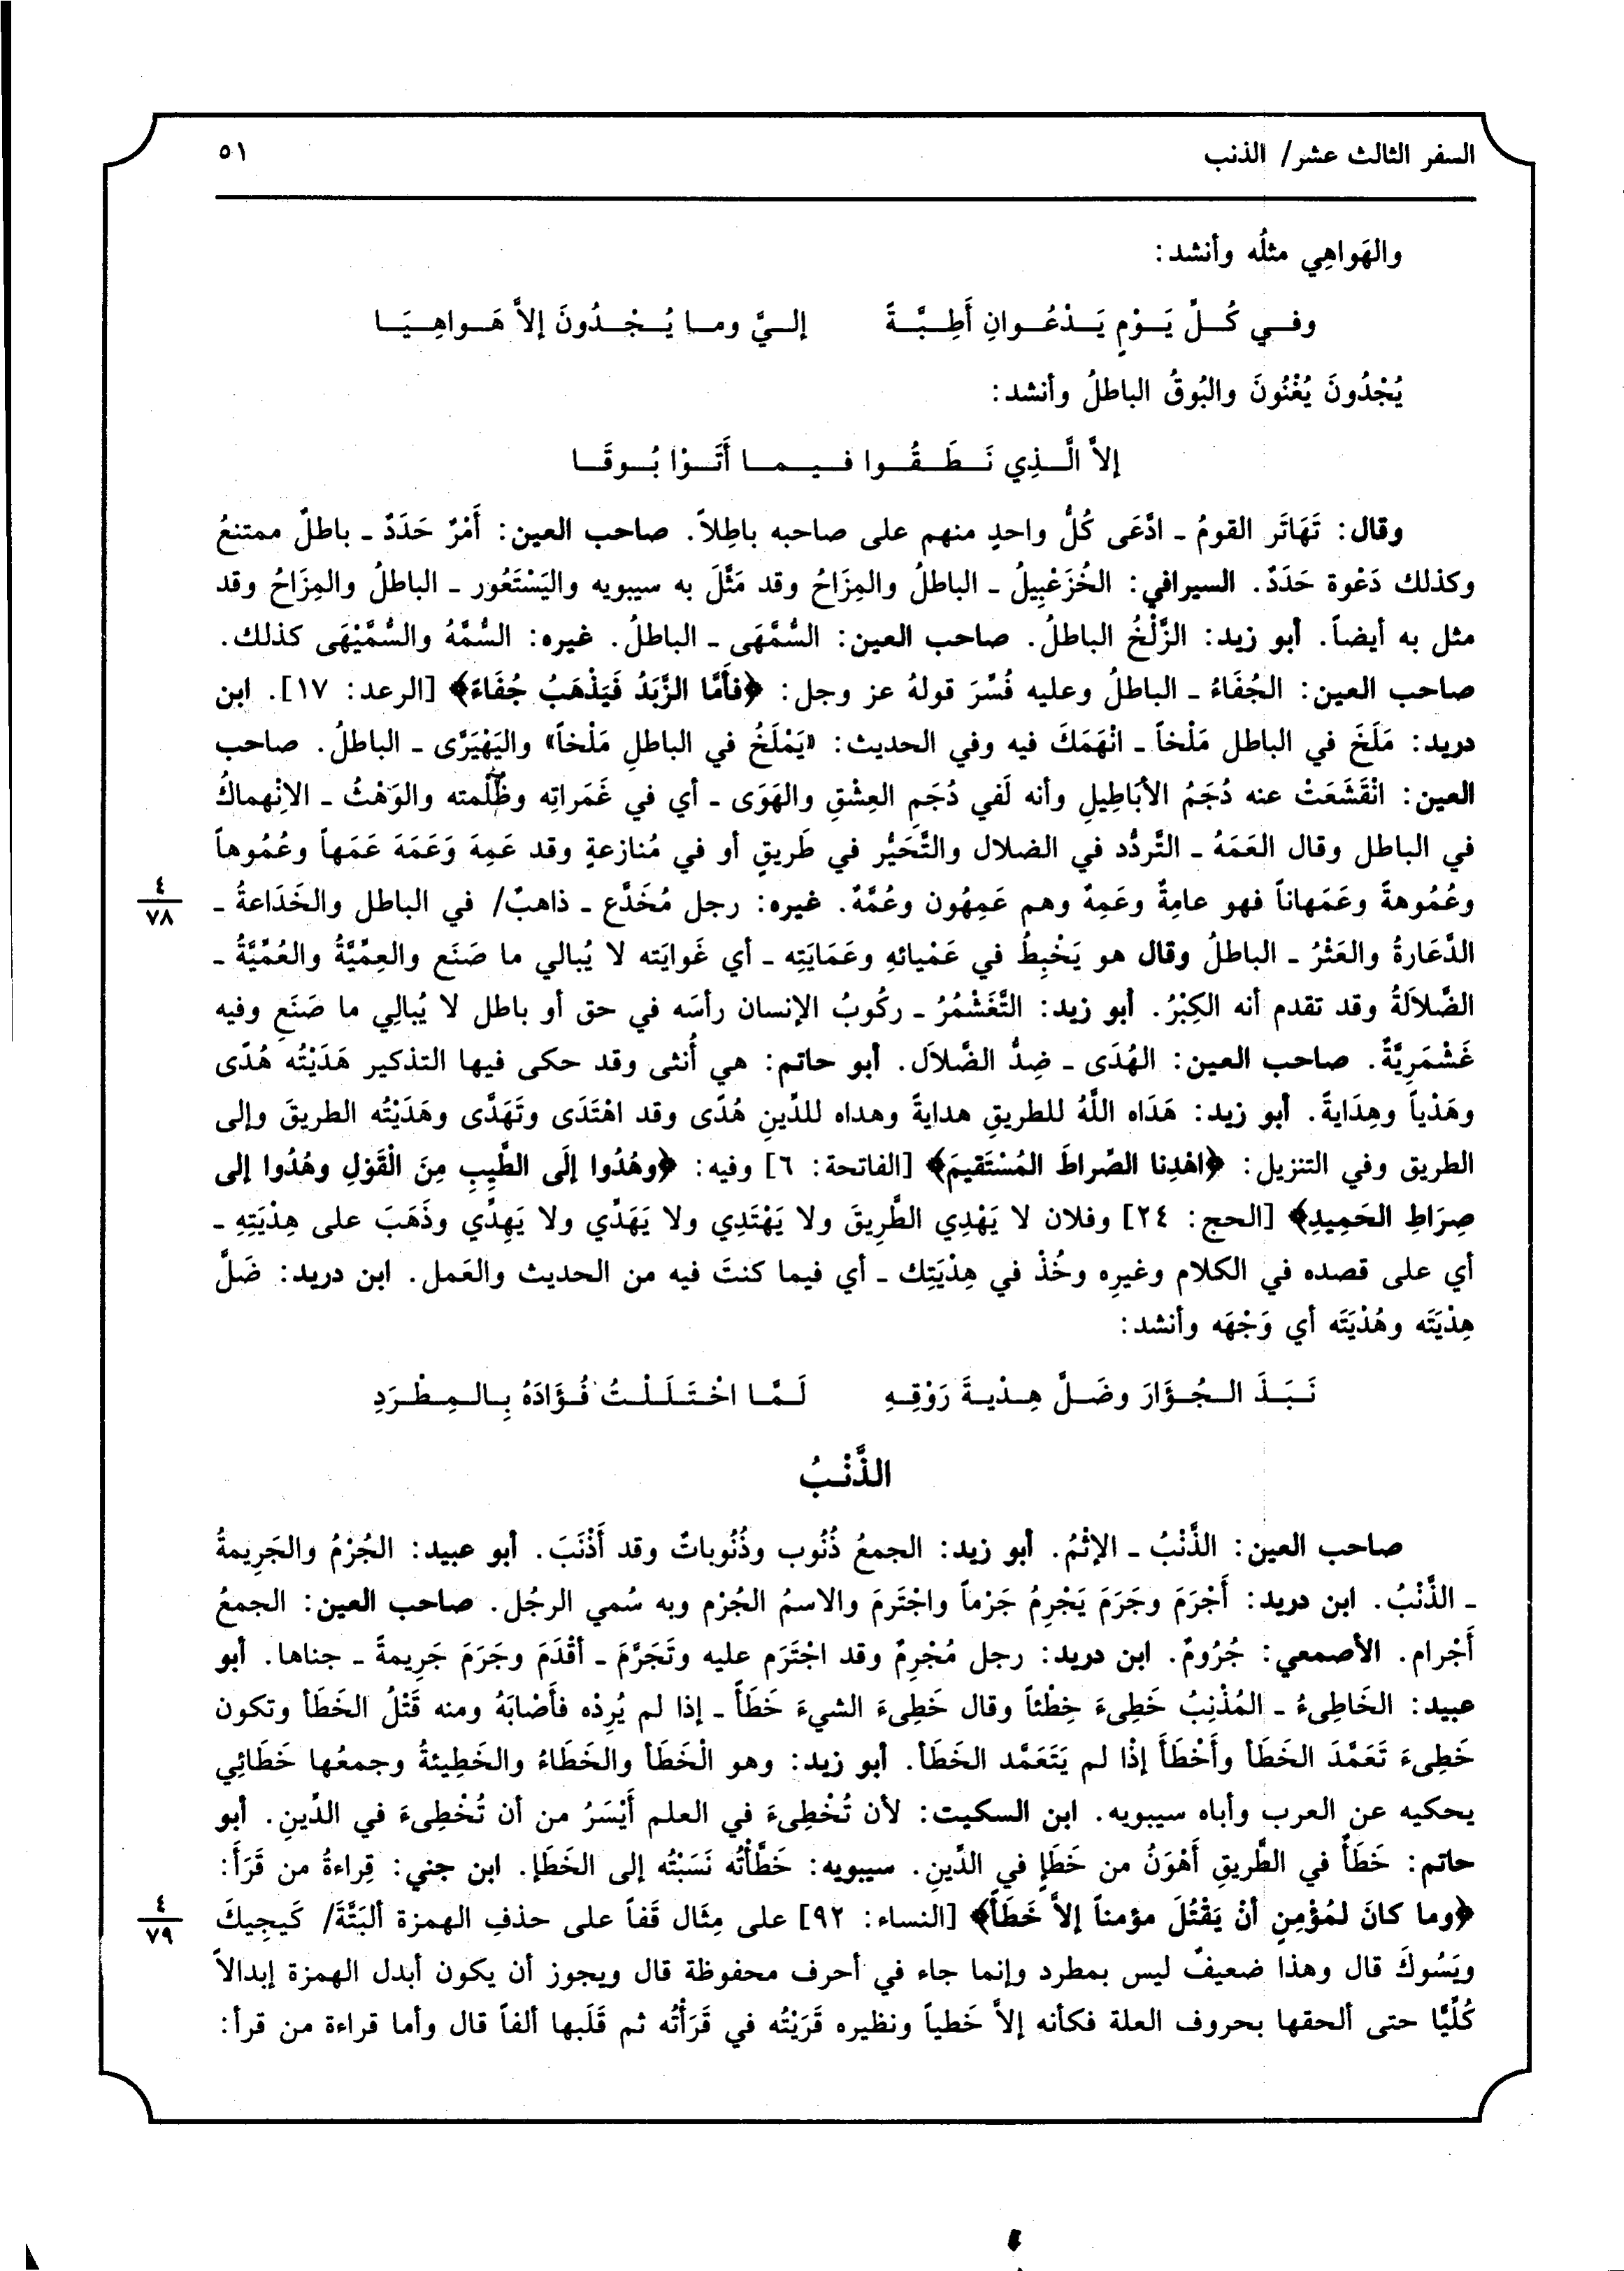 السفر الثالث عشر/ الذنب
٥١
والهَواهِي مثلُه وأنشد:
وفي كُلِّ يَوْمٍ يَدْعُوانِ أَطِبَّةً إليَّ وما يُجْدُونَ إلاَّ هَواهِيَا
يُجْدُونَ يُغْنُونَ والبُوقُ الباطلُ وأنشد:
إلاَّ الَّذِي نَطَقُوا فيما أَتَوْا بُوقَا
وقال: تَهَاتَر القومُ - ادَّعَى كُلُّ واحدٍ منهم على صاحبه باطِلاً. صاحب العين: أَمْرٌ حَدَدٌ - باطلٌ ممتنعُ
وكذلك دَعْوة حَدَدٌ. السيرافي: الخُزَعْبِيلُ - الباطلُ والمِزَاحُ وقد مَثَّلَ به سيبويه واليَسْتَعُور - الباطلُ والمِزَاحُ وقد
مثل به أيضاً. أبو زيد: الزَّلْخُ الباطلُ. صاحب العين: السُّمَّهَى - الباطلُ. غيره: السُّمَّهُ والسُّمَّيْهَى كذلك.
صاحب العين: الجُفَاءُ - الباطلُ وعليه فُسِّرَ قولهُ عز وجل: ﴿فأَمَّا الزَّبَدُ فَيَذْهَبُ جُفَاءً﴾ [الرعد: ١٧]. ابن
دريد: مَلَخَ في الباطل مَلْخاً - انْهَمَكَ فيه وفي الحديث: «يَمْلَخُ في الباطلِ مَلْخاً» واليَهْيَرَّى - الباطلُ. صاحب
العين: انْقَشَعَتْ عنه دُجَمُ الأبَاطِيلِ وأنه لَفي دُجَمِ العِشْقِ والهَوَى - أي في غَمَراتِه وظُلْمته والوَهْثُ - الاِنْهماكُ
في الباطل وقال العَمَهُ - التَّردُّد في الضلال والتَّحَيُّر في طَريقٍ أو في مُنازعةٍ وقد عَمِهَ وَعَمَهَ عَمَهاً وعُمُوهاً
وعُمُوهةً وعَمَهاناً فهو عامِهٌ وعَمِهٌ وهم عَمِهُون وعُمَّهٌ. غيره: رجل مُخَدَّع - ذاهبٌ/ في الباطل والخَدَاعةُ -
٤
٧٨
الدَّعَارةُ والعَثْرُ - الباطلُ وقال هو يَخْبِطُ في عَمْيائهِ وعَمَايَتِه - أي غَوايَته لا يُبالي ما صَنَع والعِمِّيَّةُ والعُمِّيَّةُ -
الضَّلاَلَةُ وقد تقدم أنه الكِبْرُ. أبو زيد: التَّغَشْمُرُ - ركُوبُ الإنسان رأسَه في حق أو باطل لا يُبالِي ما صَنَعِ وفيه
غَشْمَرِيَّةٌ. صاحب العين: الهُدَى - ضِدُّ الضَّلاَل. أبو حاتم: هي أُنثى وقد حكى فيها التذكير هَدَيْتُه هُدًى
وهَدْياً وهِدَايةً. أبو زيد: هَدَاه اللَّهُ للطريقِ هدايةً وهداه للدِّينِ هُدًى وقد اهْتَدَى وتَهَدَّى وهَدَيْتُه الطريقَ وإلى
الطريق وفي التنزيل: ﴿اهْدِنا الصِّراطَ المُسْتَقيمَ﴾ [الفاتحة: ٦] وفيه: ﴿وهُدُوا إلَى الطَّيِبِ مِنَ الْقَوْلِ وهُدُوا إلى
صِرَاطِ الحَمِيدِ﴾ [الحج: ٢٤] وفلان لا يَهْدِي الطَّرِيقَ ولا يَهْتَدِي ولا يَهَدِّي ولا يَهِدِّي وذَهَبَ على هِدْيَتِهِ -
أي على قصده في الكلام وغيرِه وخُذْ في هِدْيَتِك - أي فيما كنتَ فيه من الحديث والعَمل. ابن دريد: ضَلَّ
هِدْيَتَه وهُدْيَتَه أي وَجْهَه وأنشد:
نَبَذَ الجُؤَارَ وضَلَّ هِدْيةَ رَوْقِهِ لَمَّا اخْتَلَلْتُ فُؤَادَهُ بِالمِطْرَدِ
الذَّنْبُ
صاحب العين: الذَّنْبُ - الإثْمُ. أبو زيد: الجمعُ ذُنُوب وذُنُوباتٌ وقد أَذْنَبَ. أبو عبيد: الجُرْمُ والجَرِيمةُ
- الذَّنْبُ. ابن دريد: أَجْرَمَ وجَرَمَ يَجْرِمُ جَرْماً واجْتَرَمَ والاسمُ الجُرْم وبه سُمي الرجُل. صاحب العين: الجمعُ
أَجْرام. الأصمعي: جُرُومٌ. ابن دريد: رجل مُجْرِمٌ وقد اجْتَرَم عليه وتَجَرَّمَ - أقْدَمَ وجَرَمَ جَرِيمةً - جناها. أبو
عبيد: الخَاطِىءُ - المُذْنِبُ خَطِىءَ خِطْئاً وقال خَطِىءَ الشيءَ خَطَأً - إذا لم يُرِدْه فأَصْابَهُ ومنه قَتْلُ الخَطَأ وتكون
خَطِىءَ تَعَمَّدَ الخَطَأ وأَخْطَأَ إذْا لم يَتَعَمَّد الخَطَأ. أبو زيد: وهو الْخَطَأ والخَطَاءُ والخَطِيئةُ وجمعُها خَطَائِي
يحكيه عن العرب وأباه سيبويه. ابن السكيت: لأن تُخْطِىءَ في العلم أَيْسَرُ من أن تُخْطِىءَ في الدِّينِ. أبو
حاتم: خَطَأٌ في الطَّريقِ أَهْوَنُ من خَطَإٍ في الدِّينِ. سيبويه: خَطَّأْتُه نَسَبْتُه إلى الخَطَإ. ابن جني: قِراءةُ من قَرَأَ:
﴿وما كانَ لمُؤْمِنٍ أنْ يَقْتُلَ مؤمناً إلاَّ خَطَأً﴾ [النساء: ٩٢] على مِثَال قَفاً على حذفِ الهمزة ألبَتَّةَ/ كَيجِيكَ
٤
٧٩
ويَسُوكَ قال وهذا ضعيفٌ ليس بمطرد وإنما جاء في أحرف محفوظة قال ويجوز أن يكون أبدل الهمزة إبدالاً
كُلِّيًّا حتى ألحقها بحروف العلة فكأنه إلاَّ خَطياً ونظيره قَرَيْتُه في قَرَأْتُه ثم قَلَبها ألفاً قال وأما قراءة من قرأ: